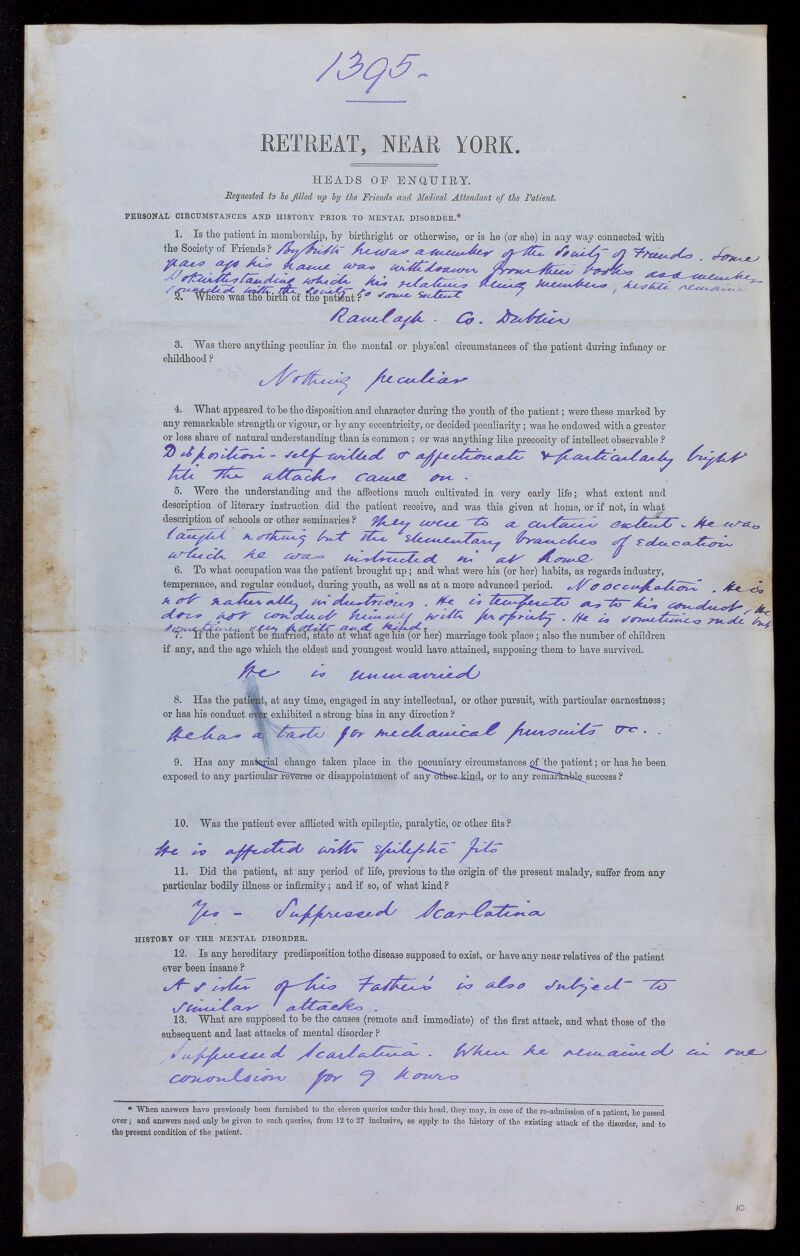 1395-
RETREAT, NEAR YORK.
HEADS OF ENQUIRY.
Requested to be filled up by the Friends and Medical Attendant of the Patient.
PERSONAL CIRCUMSTANCES AND HISTORY PRIOR TO MENTAL DISORDER.*
1. Is the patient in membership, by birthright or otherwise, or is he (or she) in any way connected with
the Society of Friends? By birth he was a member of the Society of Friends. Some
years ago his name was withdrawn from their books as a member
Notwithstanding which his relatives being members, he still remains
connected with the Society to some extent
2. Where was the birth of the patient?
Ranelagh. Co. Dublin
3. Was there anything peculiar in the mental or physical circumstances of the patient during infancy or
childhood?
Nothing peculiar
4. What appeared to be the disposition and character during the youth of the patient; were these marked by
any remarkable strength or vigour, or by any eccentricity, or decided peculiarity; was he endowed with a greater
or less share of natural understanding than is common; or was anything like precocity of intellect observable?
Disposition - self willed & affectionate & particularly bright
till the attacks came on.
5. Were the understanding and the affections much cultivated in very early life; what extent and
description of literary instruction did the patient receive, and was this given at home, or if not, in what
description of schools or other seminaries? They were to a certain extent - He was
taught nothing but the elementary branches of education
which he was instructed in at home
6. To what occupation was the patient brought up; and what were his (or her) habits, as regards industry,
temperance, and regular conduct, during youth, as well as at a more advanced period. No occupation. He is
not naturally industrious. He is temperate as to his conduct, he
does not conduct himself with propriety. He is sometimes rude but
sometimes very polite and kind.
7. If the patient be married, state at what age his (or her) marriage took place; also the number of children
if any, and the age which the eldest and youngest would have attained, supposing them to have survived.
He is unmarried
8. Has the patient, at any time, engaged in any intellectual, or other pursuit, with particular earnestness;
or has his conduct ever exhibited a strong bias in any direction?
He has a taste for mechanical pursuits &c..
9. Has any material change taken place in the pecuniary circumstances of the patient; or has he been
exposed to any particular reverse or disappointment of any other kind, or to any remarkable success?
10. Was the patient ever afflicted with epileptic, paralytic, or other fits?
He is affected with epileptic fits
11. Did the patient, at any period of life, previous to the origin of the present malady, suffer from any
particular bodily illness or infirmity; and if so, of what kind?
Yes - Suppressed Scarlatina
HISTORY OF THE MENTAL DISORDER.
12. Is any hereditary predisposition tothe disease supposed to exist, or have any near relatives of the patient
ever been insane?
A sister of his Father's is also subject to
similar attacks.
13. What are supposed to be the causes (remote and immediate) of the first attack, and what those of the
subsequent and last attacks of mental disorder?
Suppressed Scarlatina. When he remained in one
convulsion for 9 hours
* When answers have previously been furnished to the eleven queries under this head, they may, in case of the re-admission of a patient, be passed
over; and answers need only be given to such queries, from 12 to 27 inclusive, as apply to the history of the existing attack of the disorder, and to
the present condition of the patient.
10